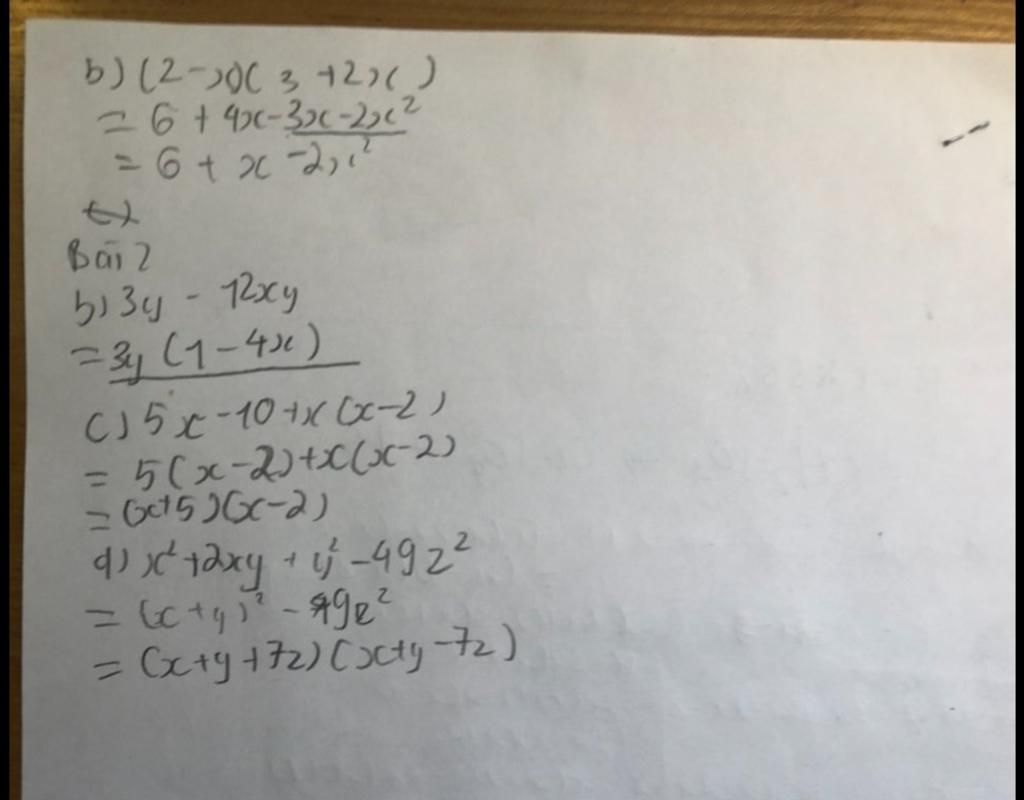 b) (2-x)( 3 +2x )
= 6 + 4x-3x-2x²
= 6 + x -2x²
Bài 2
b) 3y - 12xy
= 3y (1-4x)
c) 5x -10+x(x-2)
= 5(x-2)+x(x-2)
= (x+5)(x-2)
d) x²+2xy + y² -49z²
= (x+y)² - 49z²
= (x+y+7z)(x+y-7z)